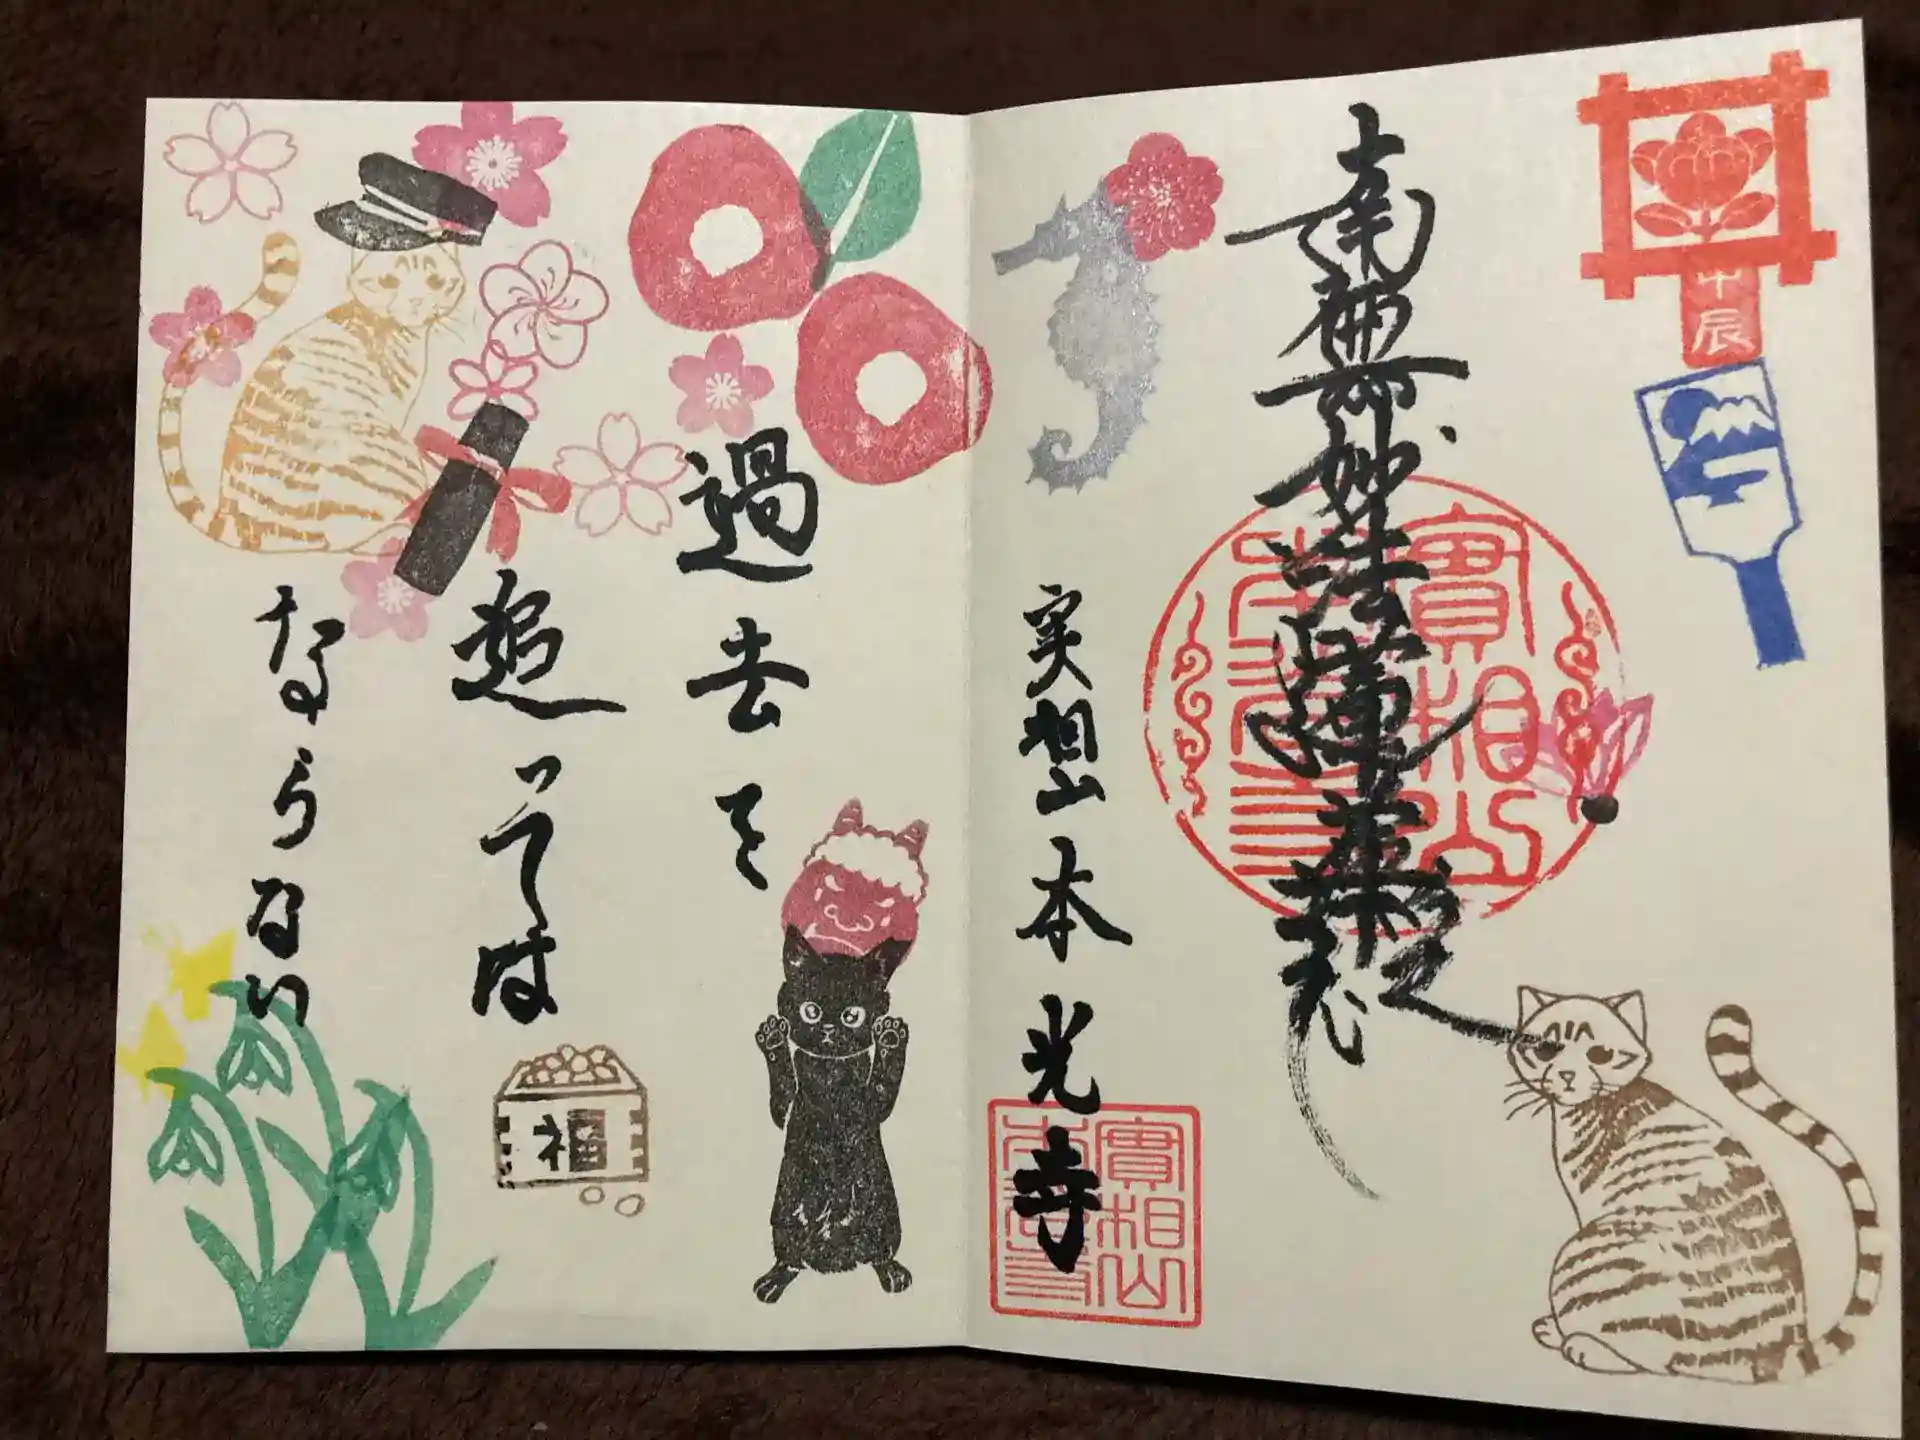 甲辰
南無妙法蓮華経
實相山
本光寺
実相山 本光寺
實相山
本光寺
過去を
追っては
ならない
福